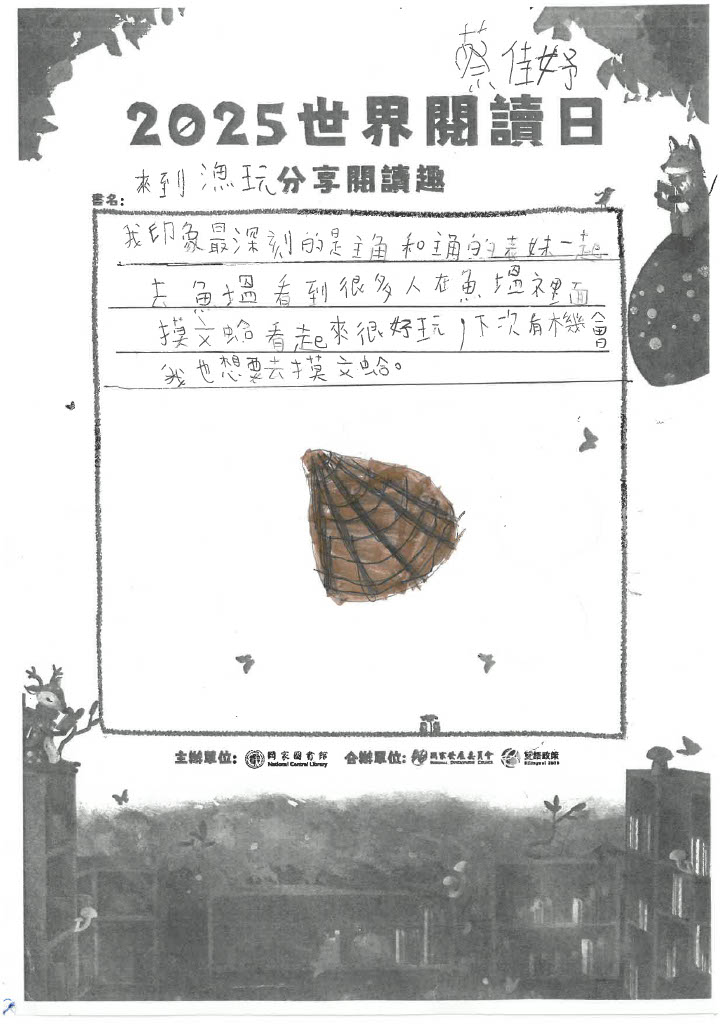 蔡佳妤
2025世界閱讀日
來到漁玩分享閱讀趣
書名:
我印象最深刻的是主角和主角的表妹一起
去魚塭看到很多人在魚塭裡面
摸文蛤看起來很好玩,下次有機會
我也想要去摸文蛤。
主辦單位: 國家圖書館 National Central Library 合辦單位: 國家發展委員會 National Development Council 雙語政策 Bilingual 2030